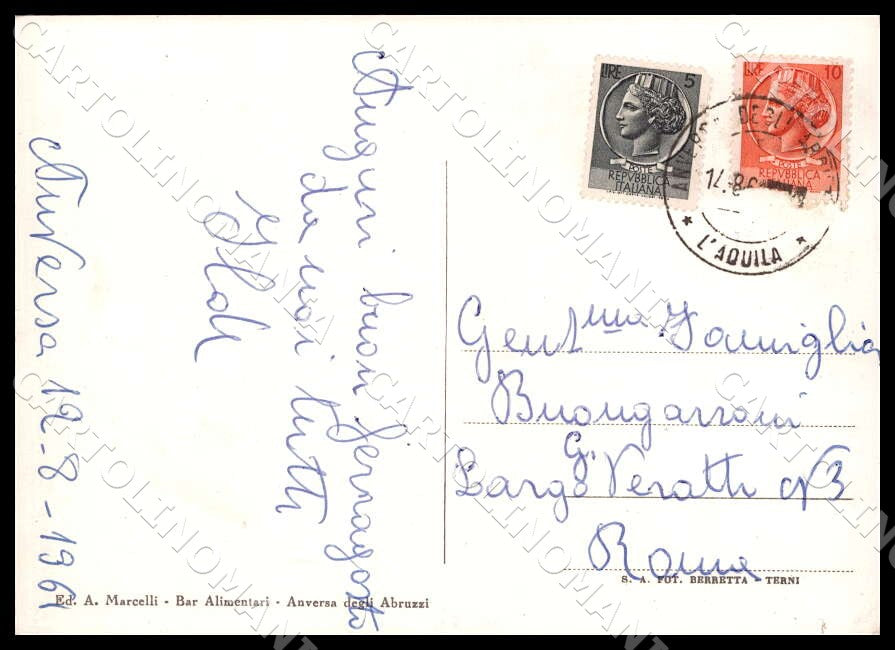 Anversa 12-8-1961
Auguri buon ferragosto
da noi tutti
LIRE 5
POSTE
REPVBBLICA
ITALIANA
LIRE 10
POSTE
REPVBBLICA
ITALIANA
14.8
L'AQUILA
Gent.ma Famiglia
Buongarzoni
Largo G. Veratti N 3
Roma
S. A. FOT. BERRETTA - TERNI
Ed. A. Marcelli - Bar Alimentari - Anversa degli Abruzzi
CARTOLINOMANIA